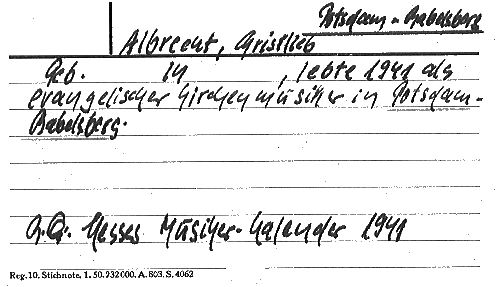 Potsdam-Babelsberg
Albrecht, Cristlieb
Geb. in , lebte 1941 als
evangelischer Kirchenmusiker in Potsdam-
Babelsberg.
Hesses Musiker-Kalender 1941
Reg. 10. Stichnote. 1. 50. 232000. A. 803. S. 4062